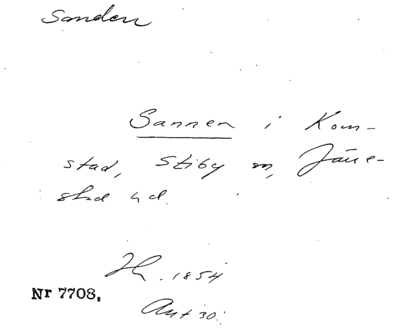 Sanden
Sannen i Kom-
stad, Stiby sn, Järre-
stad hd.
Hh. 1854
Nr 7708.
Ant 30: